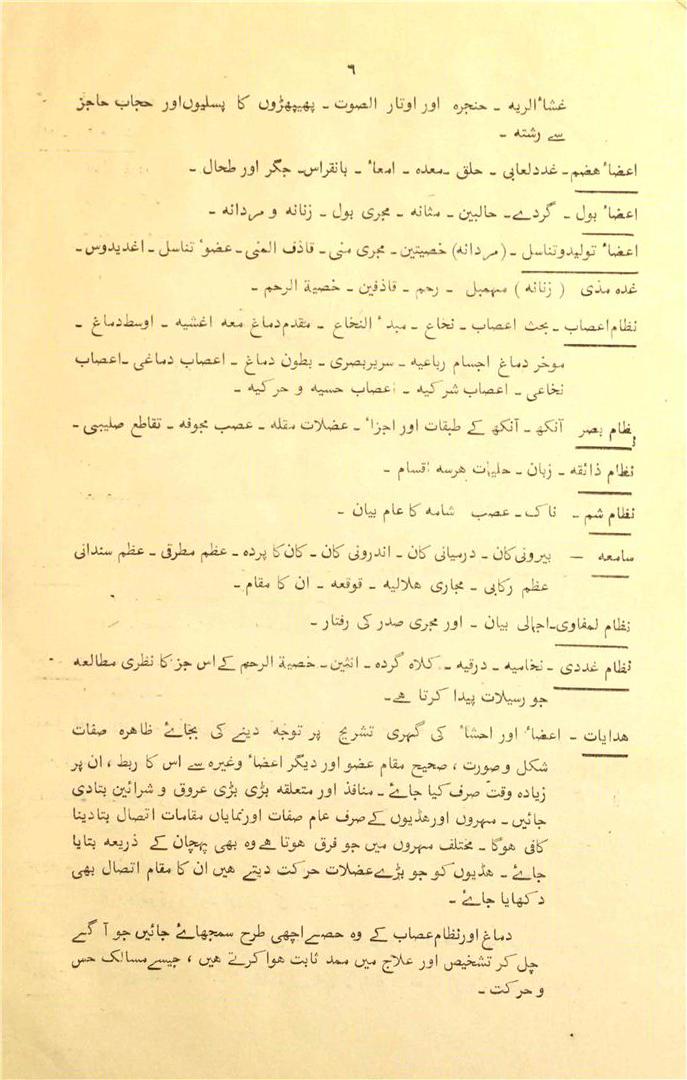 ٦
غشاٴالریه ـ حنجره اور اوتار الصوت ـ پھیپھڑوں کا پسلیوں‌اور حجاب حاجز
سے رشته ـ
اعضاٴ هضم ـ غددلعابی ـ حلق ـ معده ـ امعاٴ ـ بانقراس ـ جگر اور طحال ـ
اعضاٴ بول ـ گردے ـ حالبین ـ مثانه ـ مجری بول ـ زنانه و مردانه ـ
اعضاٴ تولیدوتناسل ـ (مردانه) خصیتین ـ مجری منی ـ قاذف المنی ـ عضوٴ تناسل ـ اغدیدوس ـ
غده مذی ( زنانه ) مہمبل ـ رحم ـ قاذفین ـ خصیة الرحم ـ
نظام‌اعصاب ـ بحث اعصاب ـ نخاع ـ مبدٴ النخاع ـ مقدم‌دماغ معه اغشیه ـ اوسط‌دماغ ـ
موخر دماغ اجسام رباعیه ـ سریربصری ـ بطون دماغ ـ اعصاب دماغی ـ اعصاب
نخاعی ـ اعصاب شرکیه ـ اعصاب حسیه و حرکیه ـ
نظام بصر آنکھ ـ آنکھ کے طبقات اور اجزاٴ ـ عضلات مقله ـ عصب مجوفه ـ تقاطع صلیبی ـ
نظام ذائقه ـ زبان ـ حلیات هرسه اقسام ـ
نظام شم ـ ناک ـ عصب شامه کا عام بیان ـ
سامعه ـ بیرونی کان ـ درمیانی کان ـ اندرونی کان ـ کان کا پرده ـ عظم مطرقی ـ عظم سندانی
عظم رکابی ـ مجاری هلالیه ـ قوقعه ـ ان کا مقام ـ
نظام لمفاوی ـ اجمالی بیان ـ اور مجری صدر کی رفتار ـ
نظام غددی ـ نخامیه ـ درقیه ـ کلاه گرده ـ انثین ـ خصیة الرحم کے اس جز کا نظری مطالعه
جو رسیلات پیدا کرتا هے ـ
هدایات ـ اعضاٴ اور احشاٴ کی گہری تشریح پر توجه دینے کی بجائے ظاهره صفات
شکل و صورت ، صحیح مقام عضو اور دیگر اعضاٴ وغیره سے اس کا ربط ، ان پر
زیاده وقت صرف کیا جائے ـ منافذ اور متعلقه بڑی بڑی عروق و شرائین بتادی
جائیں ـ مہروں اور هڈیوں کے صرف عام صفات اور نمایاں مقامات اتصال بتادینا
کافی هوگا ـ مختلف مہروں میں جو فرق هوتا هے وه بھی پہچان کے ذریعه بتایا
جائے ـ هڈیوں کو جو بڑے عضلات حرکت دیتے هیں ان کا مقام اتصال بھی
دکھایا جائے ـ
دماغ اور نظام‌عصاب کے وه حصے اچھی طرح سمجھائے جائیں جو آگے
چل کر تشخیص اور علاج میں ممد ثابت هواکرتے هیں ، جیسے مسالک حس
و حرکت ـ